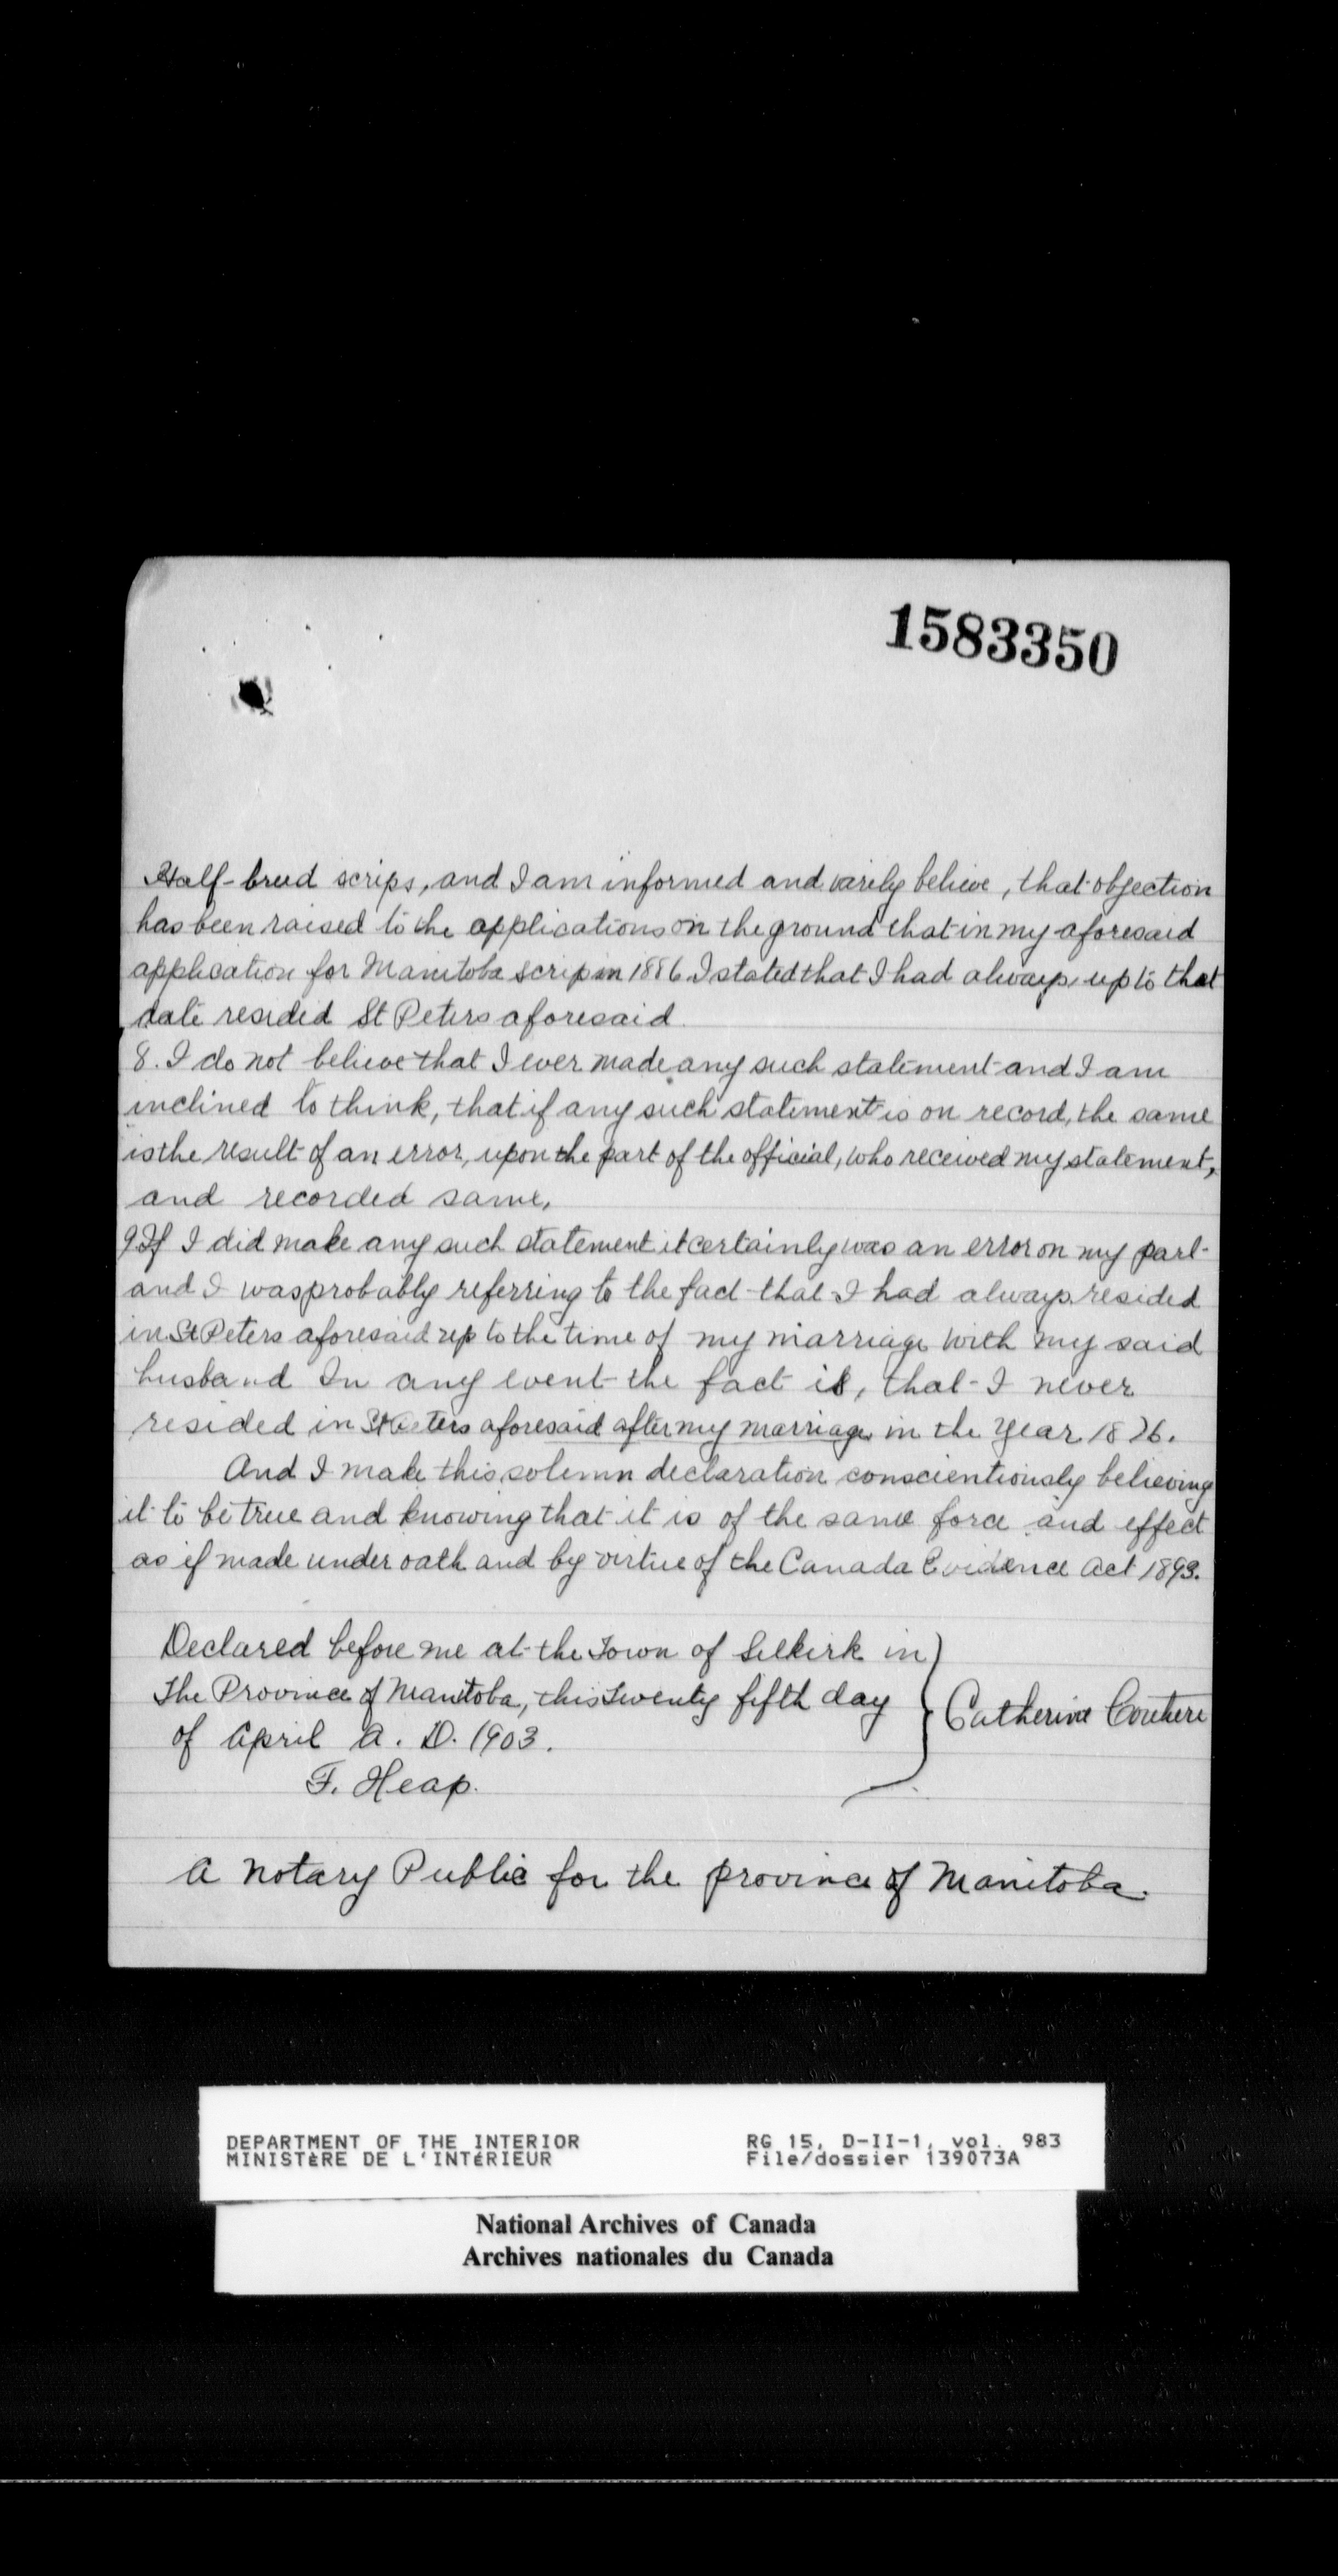 1583350
Half-breed scrips, and I am informed and verily believe, that objection
has been raised to the applications on the ground that in my aforesaid
application for Manitoba scrip in 1886 I stated that I had always up to that
date resided St Peters aforesaid.
8. I do not believe that I ever made any such statement and I am
inclined to think, that if any such statement is on record, the same
is the result of an error, upon the part of the official, who received my statement,
and recorded same,
9 If I did make any such statement it certainly was an error on my part
and I was probably referring to the fact that I had always resided
in St Peters aforesaid up to the time of my marriage with my said
husband In any event the fact is, that I never
resided in St Peters aforesaid after my marriage in the year 1826.
And I make this solemn declaration conscientiously believing
it to be true and knowing that it is of the same force and effect
as if made under oath and by virtue of the Canada Evidence Act 1893.
Declared before me at the Town of Selkirk in
The Province of Manitoba, this Twenty fifth day
of April A. D. 1903.
Catherine Couture
F. Heap.
A Notary Public for the province of Manitoba.
DEPARTMENT OF THE INTERIOR RG 15, D-II-1, vol. 983
MINISTÈRE DE L'INTÉRIEUR File/dossier 139073A
National Archives of Canada
Archives nationales du Canada